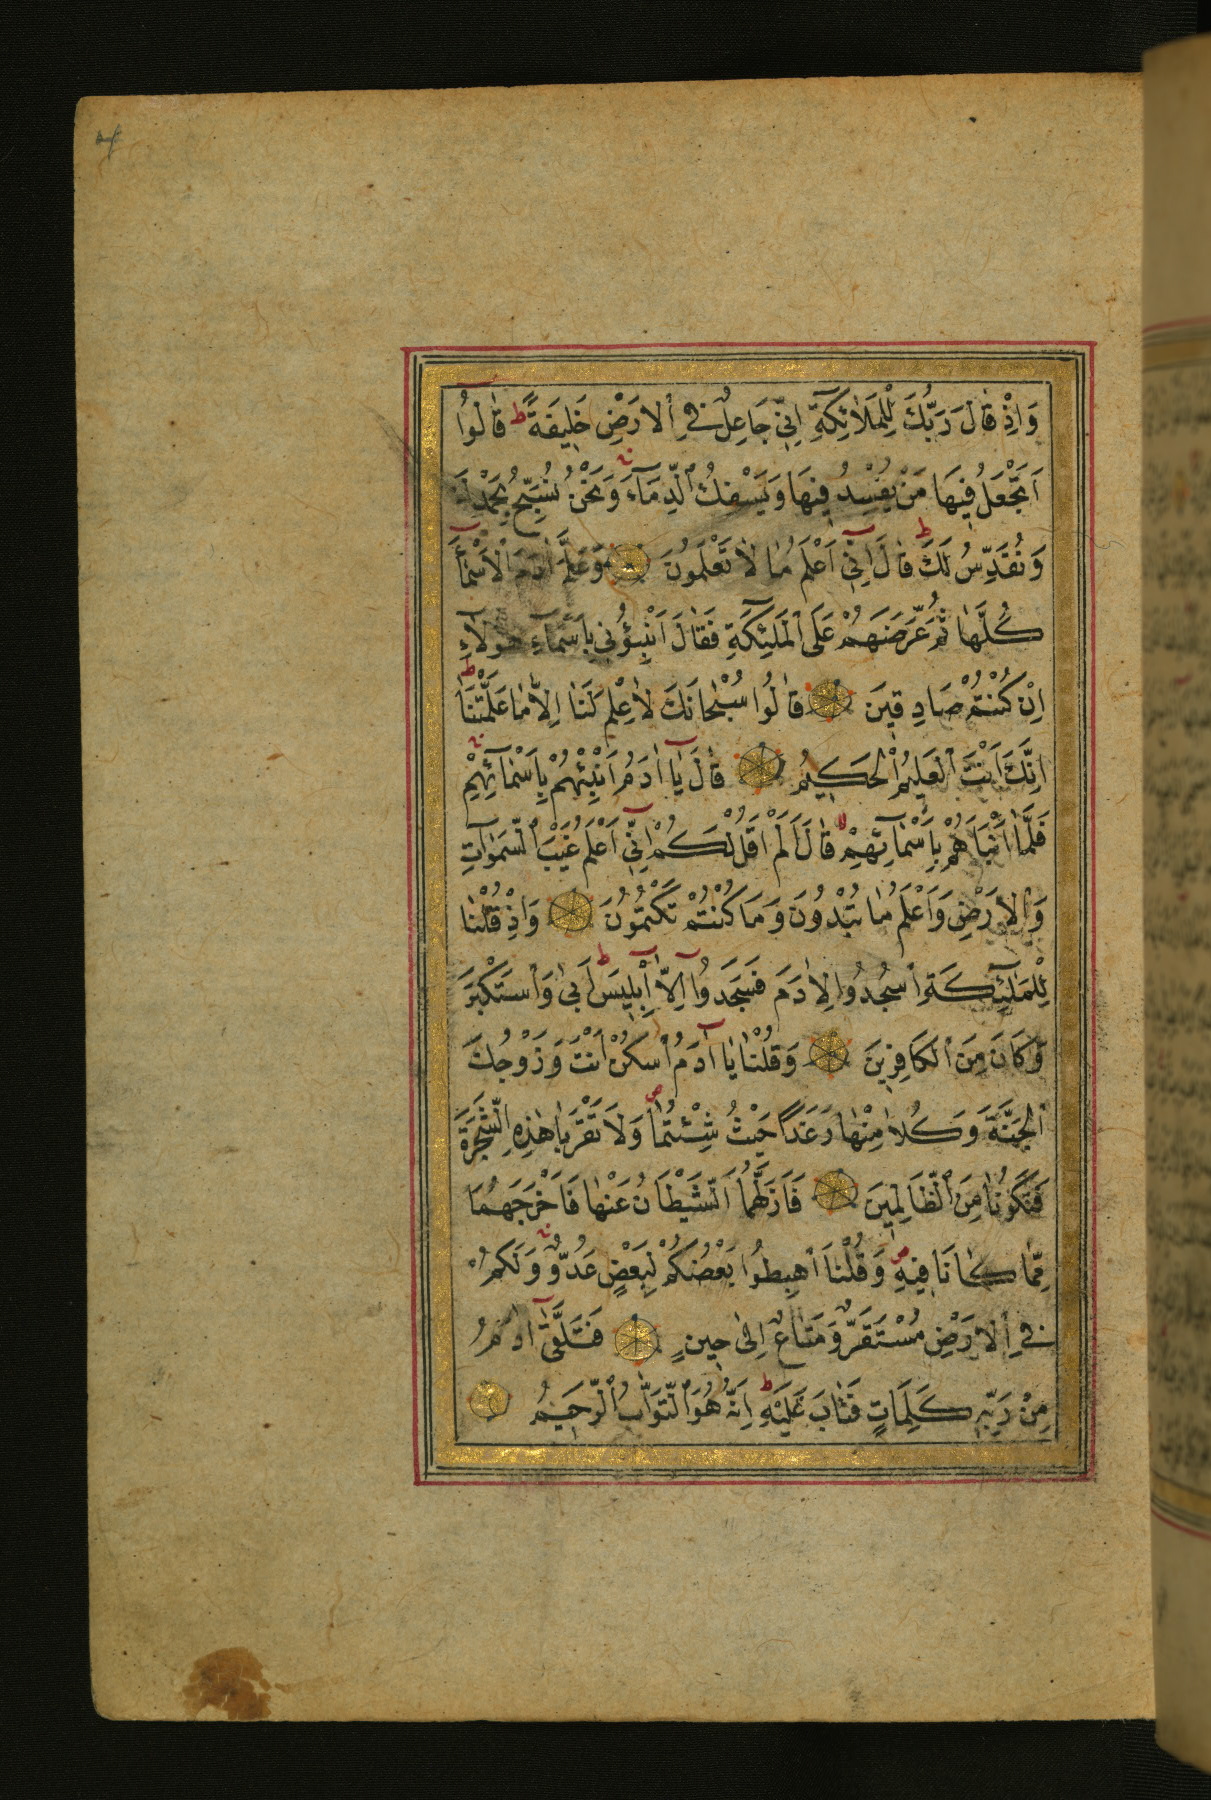 وَاِذْ قَالَ رَبُّكَ لِلْمَلٰائِكَةِ اِنّٖي جَاعِلٌ فِي الْاَرْضِ خَلٖيفَةً ط قَالُوٓا
اَتَجْعَلُ فٖيهَا مَنْ يُفْسِدُ فٖيهَا وَيَسْفِكُ الدِّمَآءَ وَنَحْنُ نُسَبِّحُ بِحَمْدِكَ
وَنُقَدِّسُ لَكَ ط قَالَ اِنّٖٓي اَعْلَمُ مَا لَا تَعْلَمُونَ وَعَلَّمَ اٰدَمَ الْاَسْمَآءَ
كُلَّهَا ثُمَّ عَرَضَهُمْ عَلَى الْمَلٰٓئِكَةِ فَقَالَ اَنْبِؤُنٖي بِاَسْمَآءِ هٰولَآءِ
اِنْ كُنْتُمْ صَادِقٖينَ قَالُوا سُبْحَانَكَ لَا عِلْمَ لَنَا اِلَّا مَا عَلَّمْتَنَا ط
اِنَّكَ اَنْتَ الْعَلٖيمُ الْحَكٖيمُ قَالَ يَآ اٰدَمُ اَنْبِئْهُمْ بِاَسْمَآئِهِمْ
فَلَمَّا اَنْبَاَهُمْ بِاَسْمَآئِهِمْ لا قَالَ اَلَمْ اَقُلْ لَكُمْ اِنّٖٓي اَعْلَمُ غَيْبَ السَّمٰوَاتِ
وَالْاَرْضِ وَاَعْلَمُ مَا تُبْدُونَ وَمَا كُنْتُمْ تَكْتُمُونَ وَاِذْ قُلْنَا
لِلْمَلٰٓئِكَةِ اسْجُدُوا لِاٰدَمَ فَسَجَدُوٓا اِلَّآ اِبْلٖيسَ ط اَبٰى وَاسْتَكْبَرَ
وَكَانَ مِنَ الْكَافِرٖينَ وَقُلْنَا يَآ اٰدَمُ اسْكُنْ اَنْتَ وَزَوْجُكَ
الْجَنَّةَ وَكُلَا مِنْهَا رَغَدًا حَيْثُ شِئْتُمَا ص وَلَا تَقْرَبَا هٰذِهِ الشَّجَرَةَ
فَتَكُونَا مِنَ الظَّالِمٖينَ فَاَزَلَّهُمَا الشَّيْطَانُ عَنْهَا فَاَخْرَجَهُمَا
مِمَّا كَانَا فٖيهِ ص وَقُلْنَا اهْبِطُوا بَعْضُكُمْ لِبَعْضٍ عَدُوٌّ وَلَكُمْ
فِي الْاَرْضِ مُسْتَقَرٌّ وَمَتَاعٌ اِلٰى حٖينٍ فَتَلَقّٰٓى اٰدَمُ
مِنْ رَبِّهٖ كَلِمَاتٍ فَتَابَ عَلَيْهِ ط اِنَّهُ هُوَ التَّوَّابُ الرَّحٖيمُ